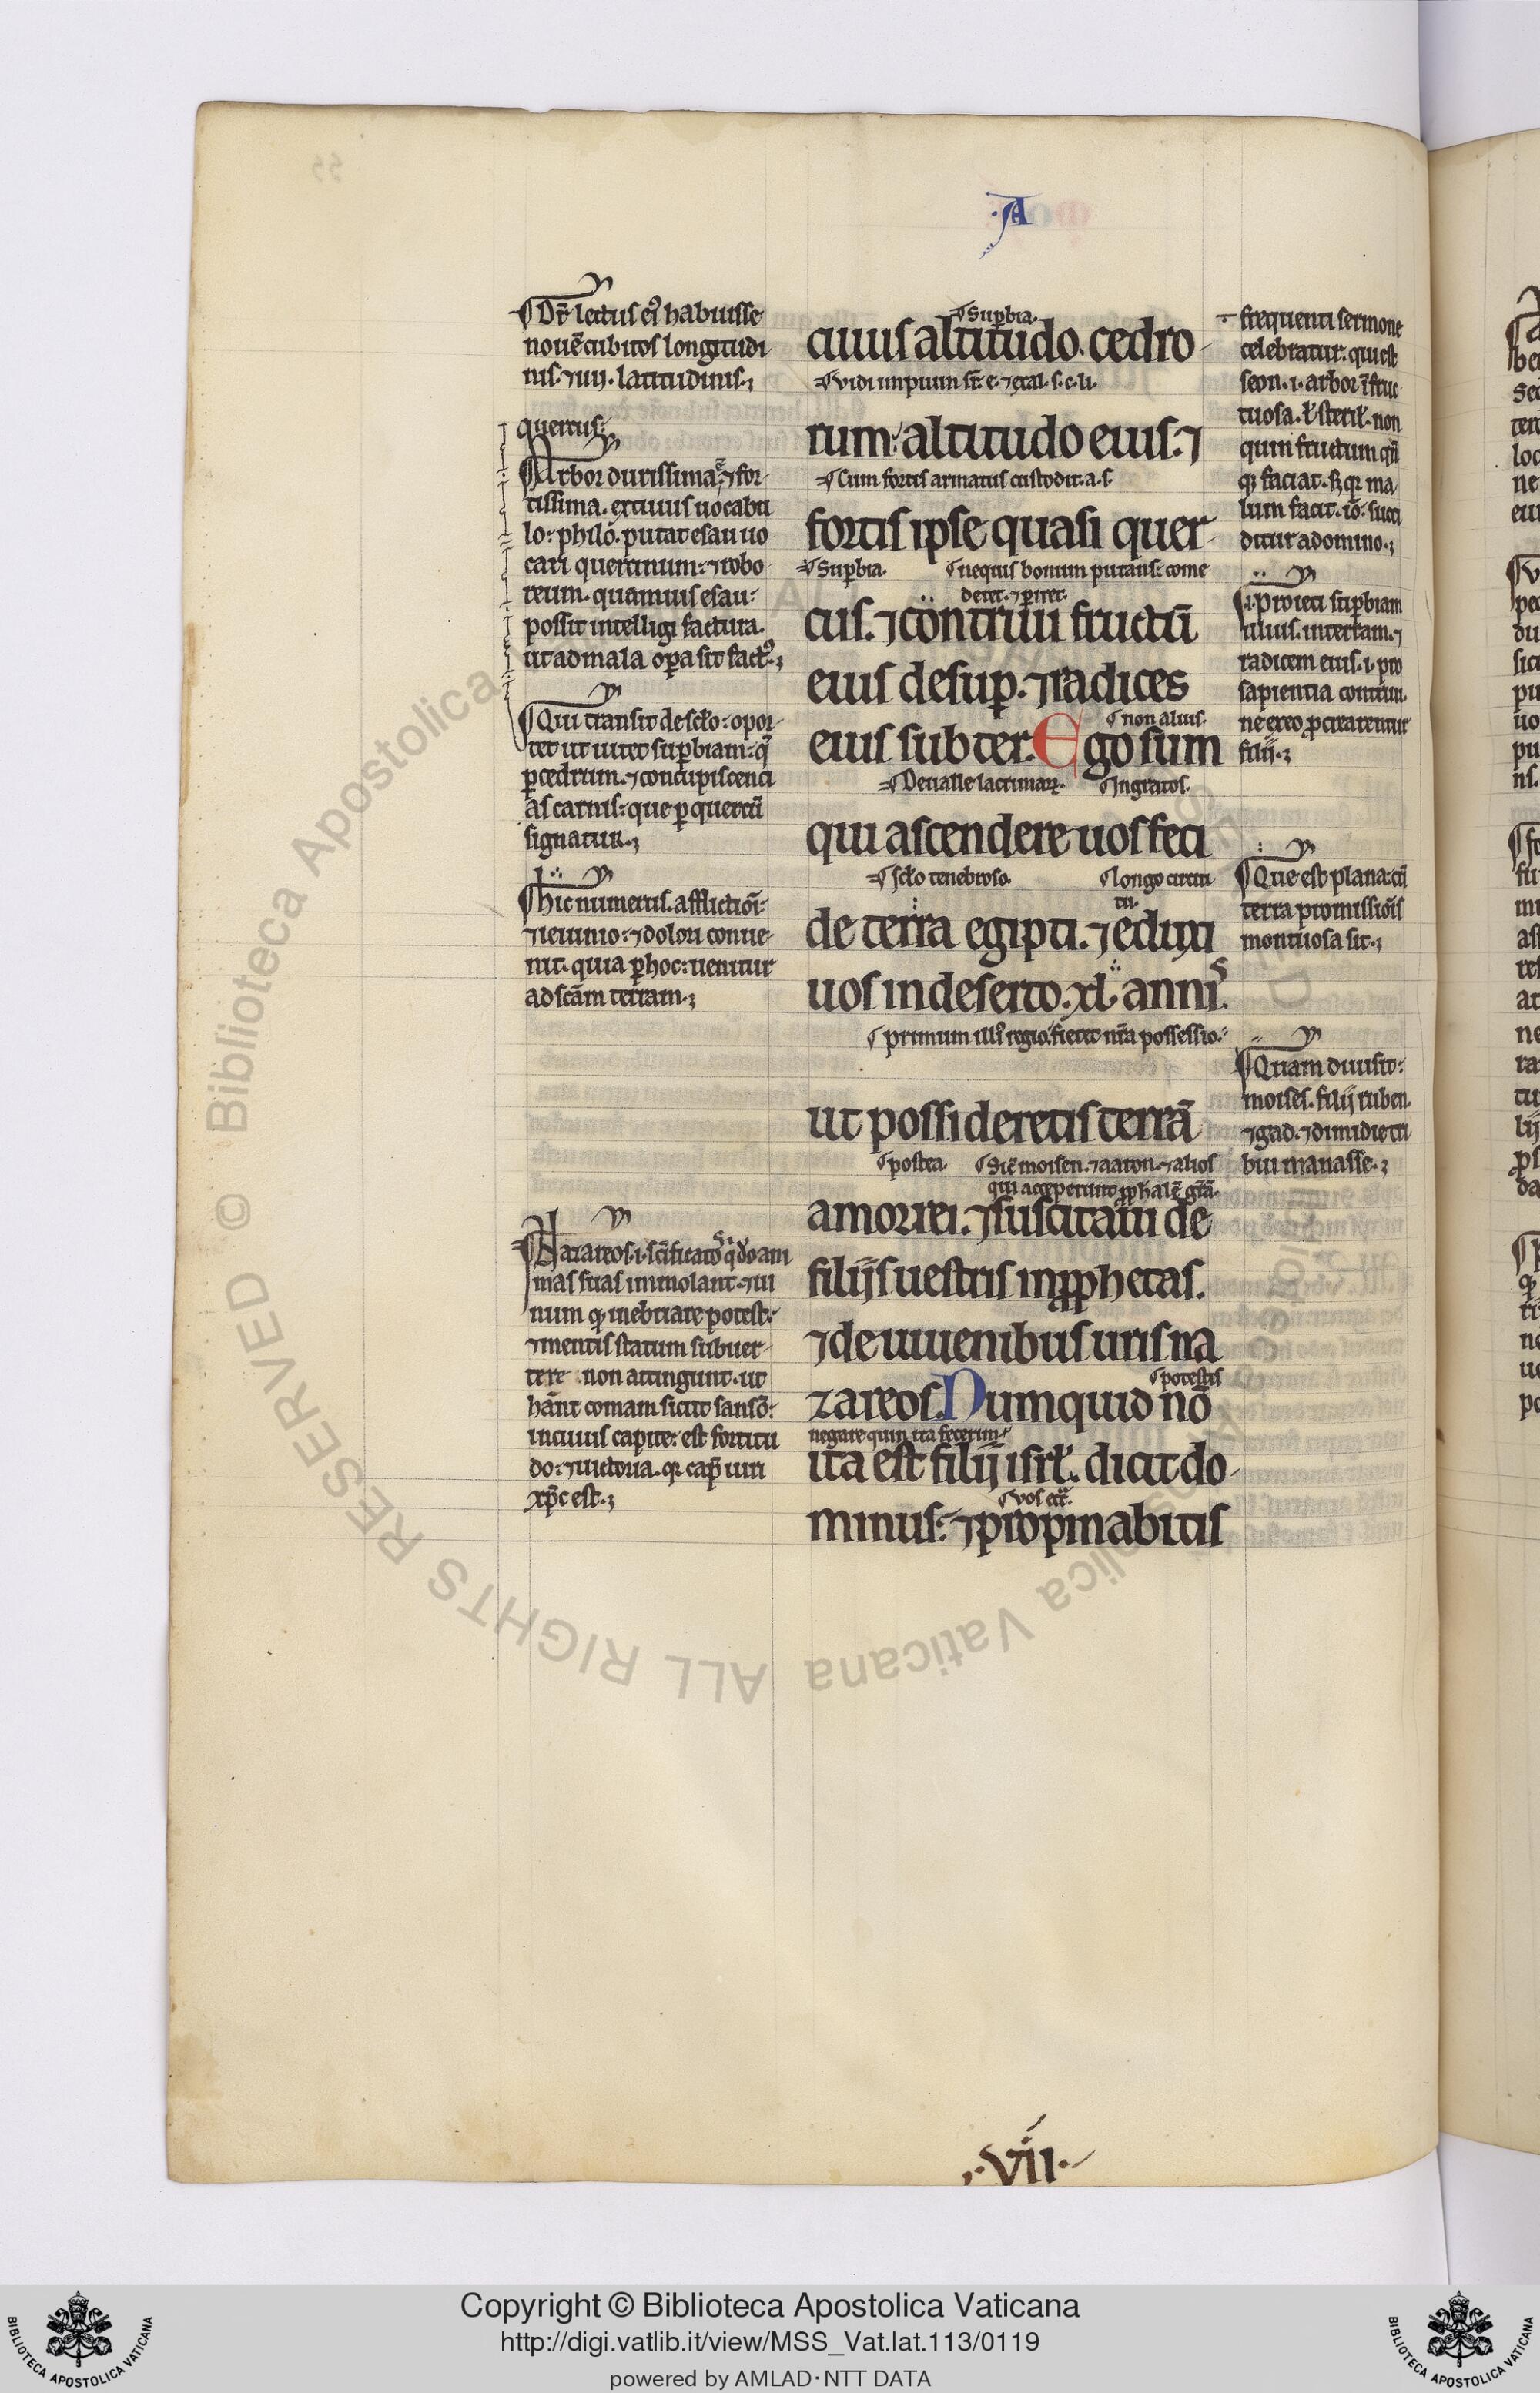 A
¶Dr̄ lectus ei9 habuisse
nouē cubitos longitudi
nis. ⁊ iiij. latitudinis.
quercus.
¶Arbor durissima. ⁊ for
tissima. ex cuius uocabu
lo: philo. putat esau uo
cari quercinum: ⁊ robo
reum. quamuis esau:
possit intelligi factura.
ut ad mala oꝑa sit fact9.
¶Qui transit de sclo: opor
tet ut uitet suꝑbiam: q̄
ꝑ cedrum. ⁊ concupiscenci
as carnis: que ꝑ quercū
signatur.
¶Hic numerus. afflictiōi:
⁊ ieiunio: ⁊ dolori conue
nit. quia ꝑ hoc: uenitur
ad scām terram.
¶Nazareos. i. scīficatos
mas suas immolant. ⁊ ui
num qd inebriare potest:
⁊ mentis statum subuer
tere non attingunt. ut
hānt comam sicut sansō:
in cuius capite: est fortitu
do: ⁊ uictoria. qr cap̄ uiri
xp̄c est.
¶Suꝑbia.
cuius altitudo. cedro
¶Vidi impium sr̄. e. ⁊ exal. s. c. li.
rum: altitudo eius. ⁊
¶Cum fortis armatus custodit. a. s.
fortis ipse quasi quer
¶Suꝑbia. ¶nequis bonum putans: come
deret. ⁊ ꝑiret.
cus. ⁊ contriui fructū
eius desuꝑ. ⁊ radices
¶non alius.
eius subter. Ego sum
¶De ualle lacrimarꝝ. ¶Ingratos.
qui ascendere uos feci
¶sclo tenebroso. ¶longo circui
tu.
de terra egipti. ⁊ eduxi
uos in deserto. xl. annis.
¶primum illis regio. fieret nr̄a possessio.
ut possideretis terrā
¶postea. ¶Sic moisen. ⁊ aaron. ⁊ alios
qui acceperunt ꝓphalē grā.
amorrei. ⁊ suscitaui de
filijs uestris in ꝓphetas.
⁊ de iuuenibus uris na
¶potestis
zareos. Numquid nō
negare quin ita fecerim
ita est filij isrl. dicit do
¶vos
minus: ⁊ propinabitis
frequenti sermone
celebratur. qui est
seon. i. arbor īfruc
tuosa. ł steril. non
quin fructum
faciat. sꝫ qr ma
lum facit. iō. succi
ditur a domino.
¶i. proieci suꝑbiam
illius. in terram. ⁊
radicem eius. i. pro
sapientia contriui.
ne ex eo ꝓcrearentur
filij.
¶Que est plana: cū
terra promissiōis
montuosa sit.
¶Quam diuisit:
moises. filij ruben.
⁊ gad. ⁊ dimidie tri
bui manasse.
.VII.
© Biblioteca Apostolica Vaticana
ALL RIGHTS RESERVED
Copyright © Biblioteca Apostolica Vaticana
http://digi.vatlib.it/view/MSS_Vat.lat.113/0119
powered by AMLAD·NTT DATA
BIBLIOTECA APOSTOLICA VATICANA
BIBLIOTECA APOSTOLICA VATICANA